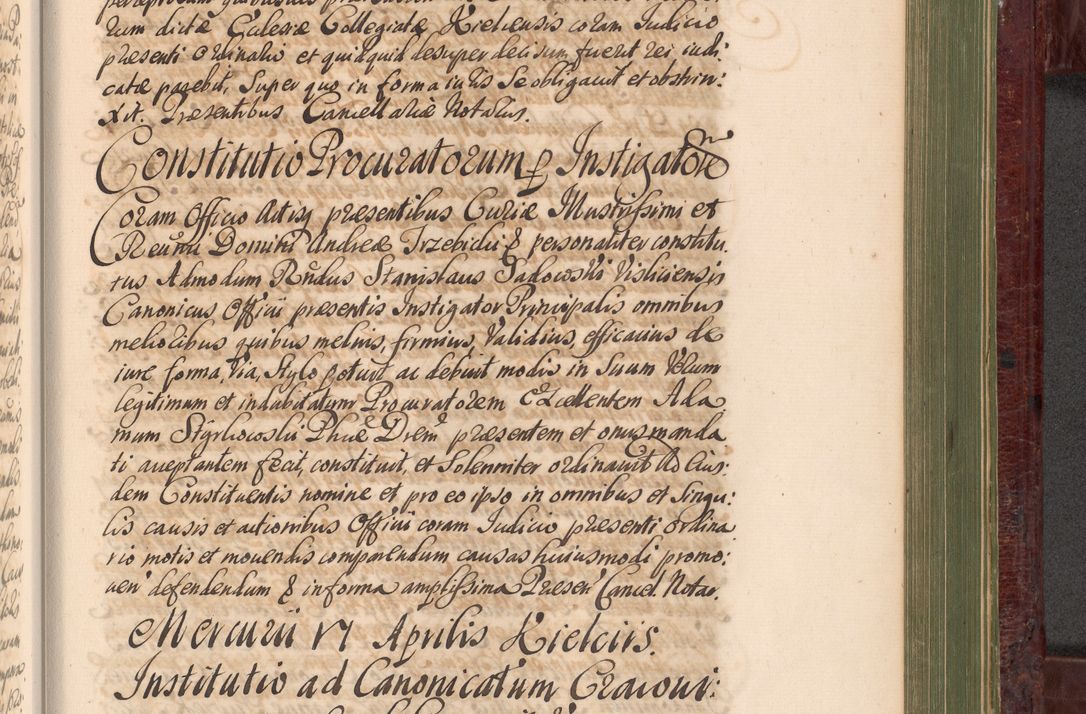 rum dictæ Ecclesiæ Collegiatæ Kielcensis coram Judicio
presenti Ordinario et quidquid desuper decisum fuerit rei iudi:
catæ parebit, Super quo in forma iuris Se obligavit et obstrin:
xit. Præsentibus Cancellariæ Notarius.
Constitutio Procuratorum p Instigatore
Coram Officio Actisq præsentibus Curiæ Illustrissimi et
Rēumi Domini Andreæ Trzebicki & personaliter constitu.
tus Admodum Rñdus Stanislaus Sadowski Visliciensis
Canonicus Officii præsentis Instigator Principalis omnibus
melioribus quibus melius, firmius, Validius, efficacius de
iure forma, Via, Stylo potuit ac debuit modis in Suum Verum
legitimum et indubitatum Procuratorem Excellentem Ada
mum Styrkowski Phiæ Drem præsentem et onus manda
ti acceptantem fecit, constituit, et Solenniter ordinavit Ad Eius:
dem Constituentis nomine et pro eo ipso in omnibus et Singu:
lis causis et actionibus Officii coram Judicio presenti ordina
rio motis et movendis comparendum causas huiusmodi promo:
ven defendendum & in forma amplissima Presen Cancel. Notar.
Mercurii 17 Aprilis Kielciis.
Institutio ad Canonicatum Cracovi: